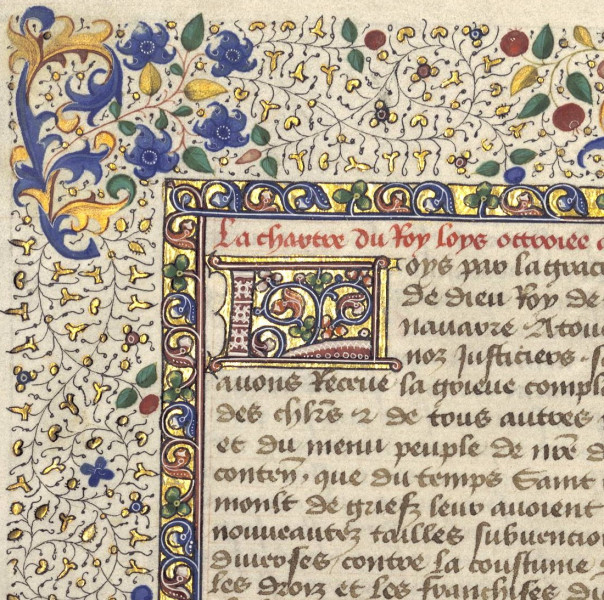 La chartre du Roy loys ottroiee a
Loys par la grace
de dieu Roy de
navarre · A tou
noz Justiciers · s
avons Receue la grieve compl
des chlr̄s ⁊ de tous autres
et du menu peuple de nr̄e d
conten̄ · que du temps Saint
moult de griefz leur avoient
nouveautez tailles subvencio
diverses · contre la coustume
les droiz et les franchises du